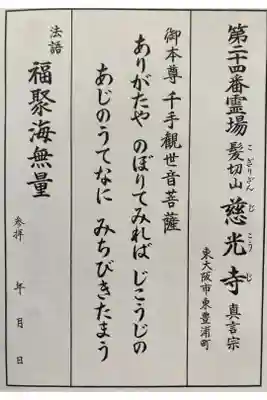 第二十四番霊場
髪切山 慈光寺 真言宗
こぎりざん じこうじ
東大阪市東豊浦町
御本尊 千手觀世音菩薩
ありがたや のぼりてみれば じこうじの
あじのうてなに みちびきたまう
法語 福聚海無量
参拝 年 月 日